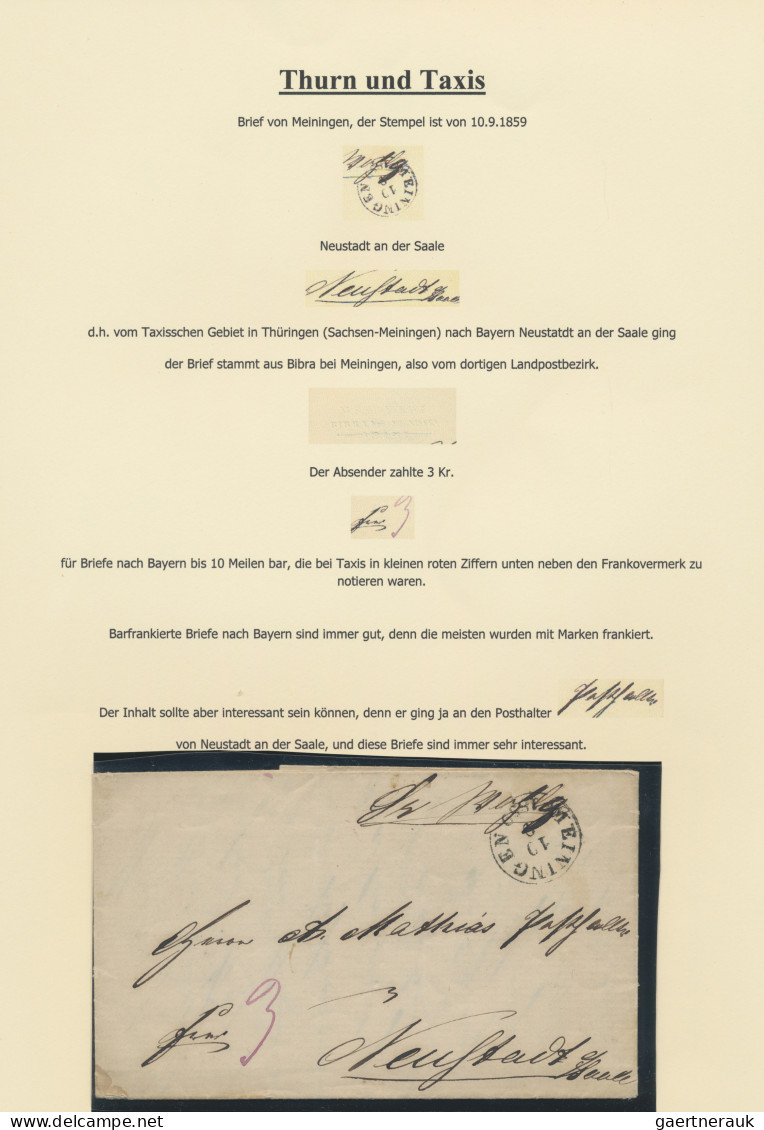 Thurn und Taxis
Brief von Meiningen, der Stempel ist von 10.9.1859
MEININGEN
10
9
Neustadt an der Saale
Neustadt a/Saale
d.h. vom Taxisschen Gebiet in Thüringen (Sachsen-Meiningen) nach Bayern Neustatdt an der Saale ging
der Brief stammt aus Bibra bei Meiningen, also vom dortigen Landpostbezirk.
Der Absender zahlte 3 Kr.
3
für Briefe nach Bayern bis 10 Meilen bar, die bei Taxis in kleinen roten Ziffern unten neben den Frankovermerk zu
notieren waren.
Barfrankierte Briefe nach Bayern sind immer gut, denn die meisten wurden mit Marken frankiert.
Posthalter
Der Inhalt sollte aber interessant sein können, denn er ging ja an den Posthalter
von Neustadt an der Saale, und diese Briefe sind immer sehr interessant.
MEININGEN
10
9
Herrn A. Mathias Posthalter
3
Neustadt a/Saale
gaertnerauk